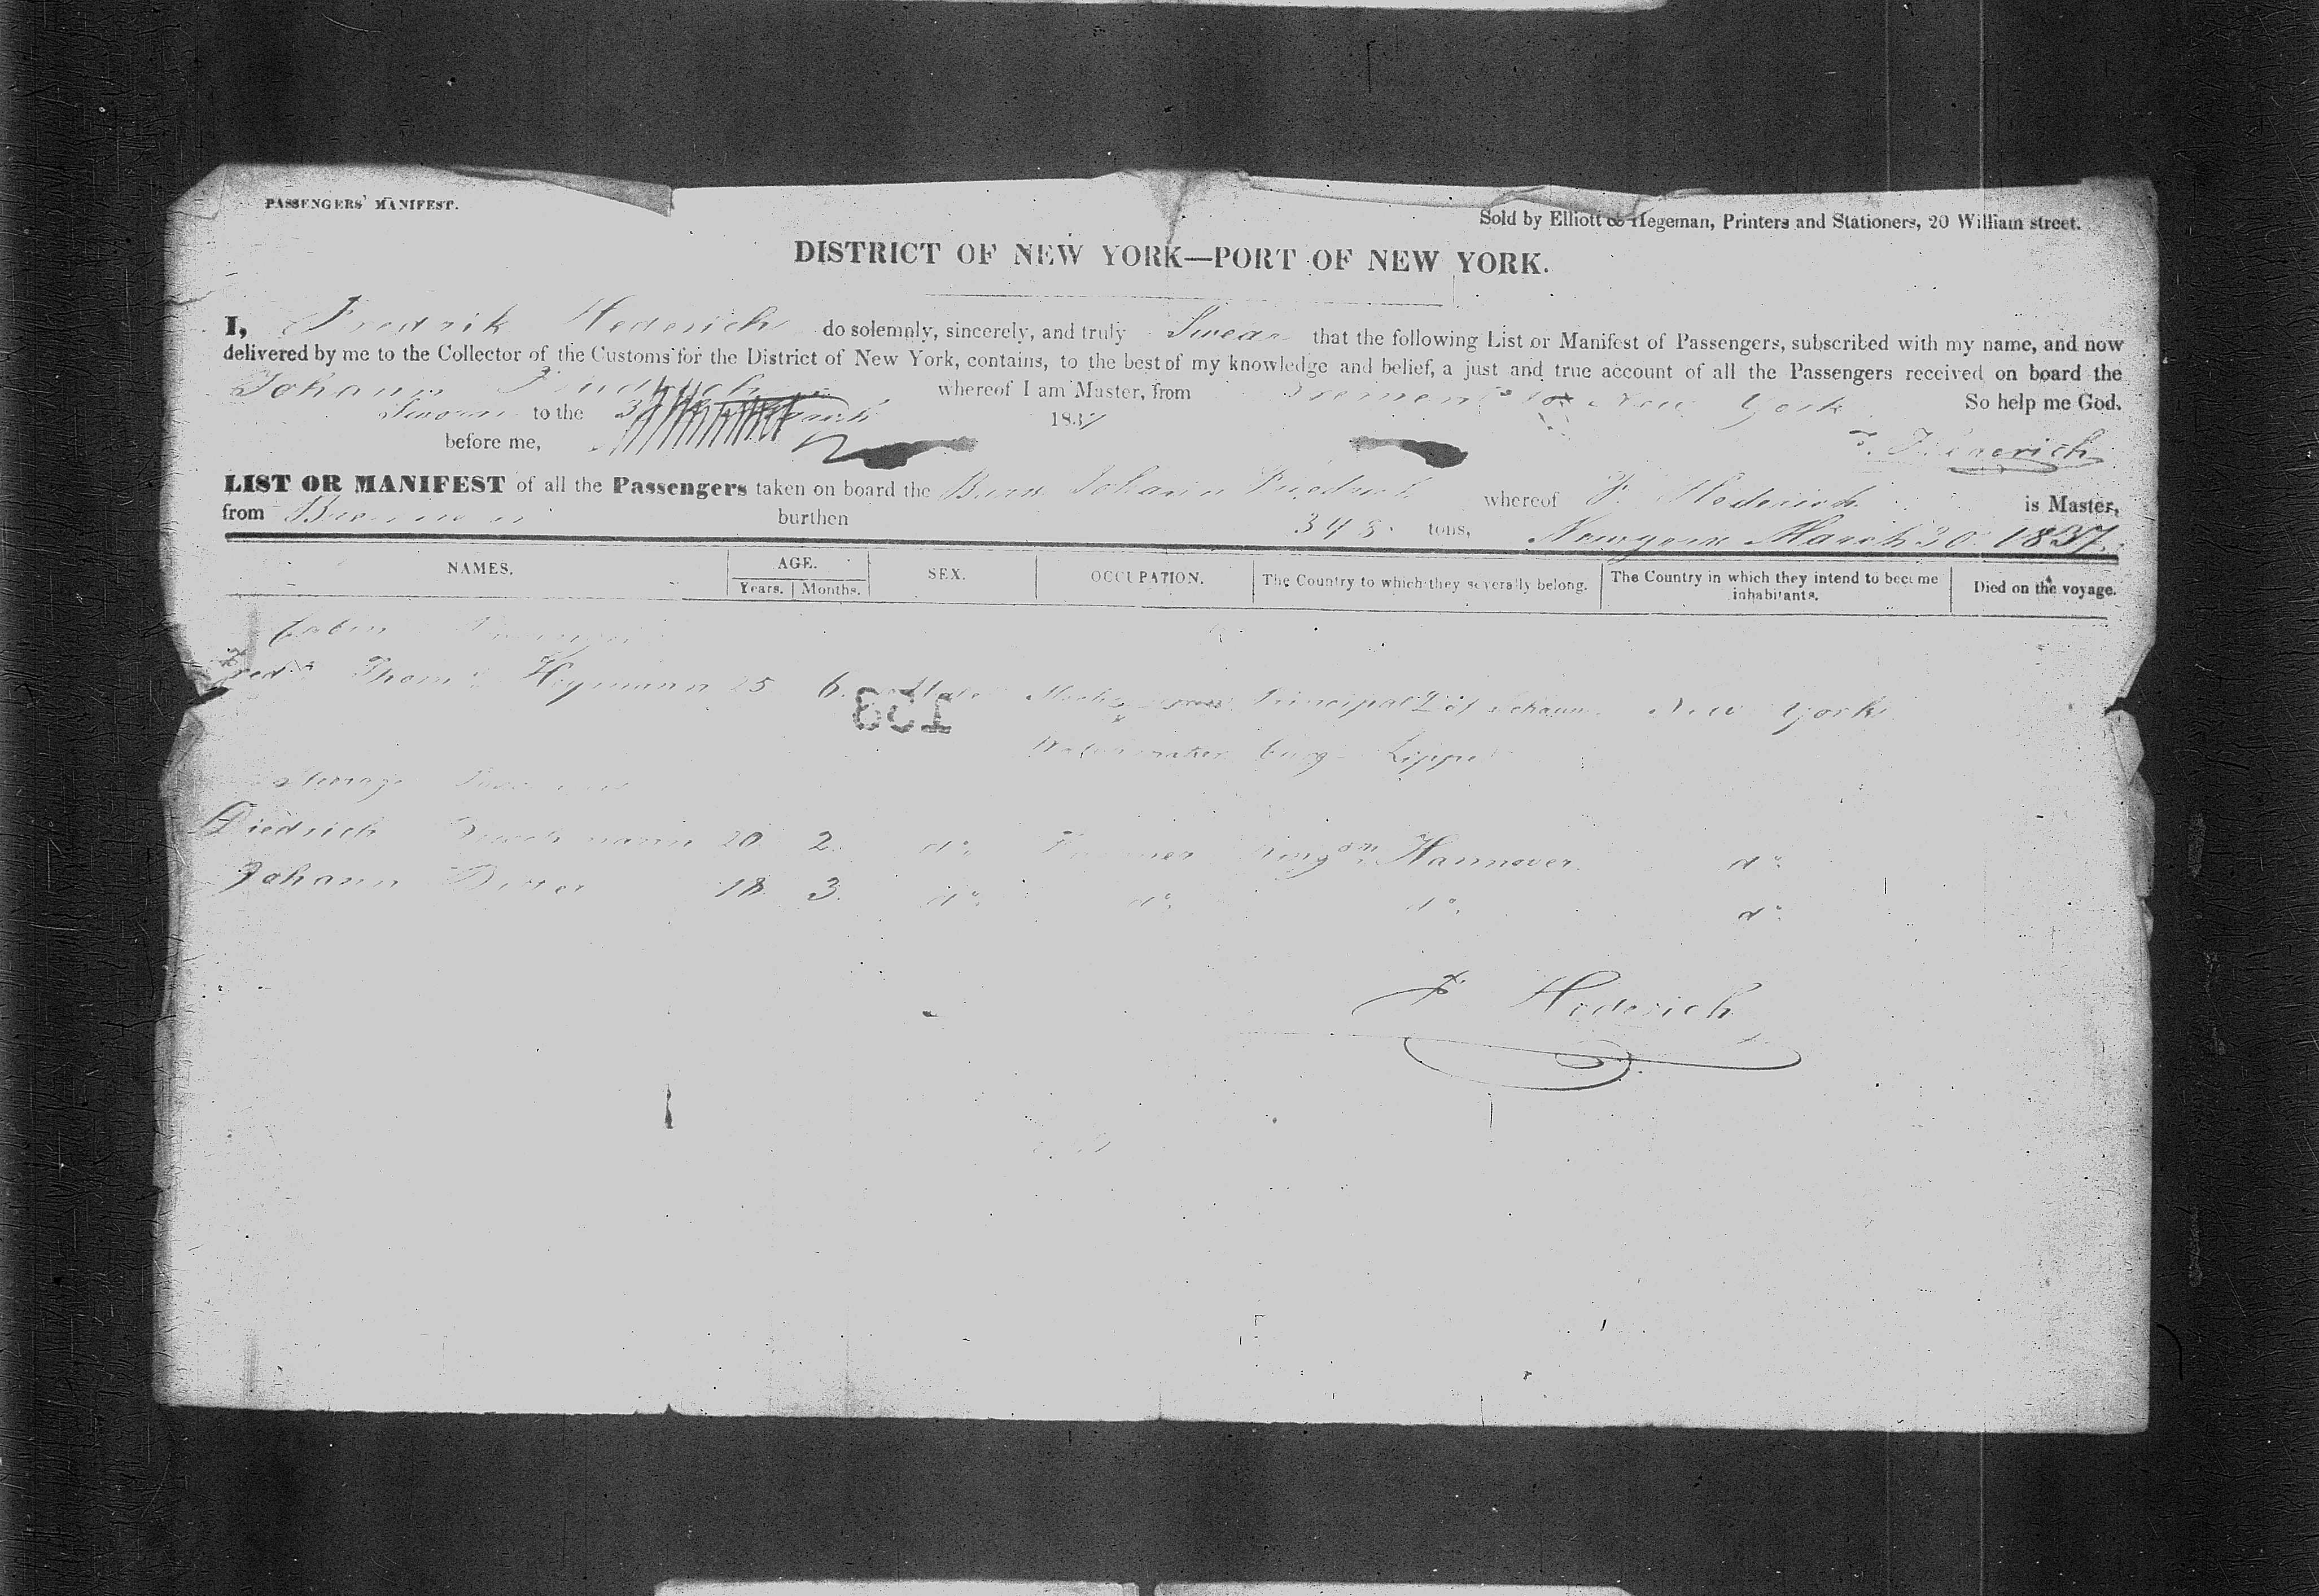 PASSENGERS' MANIFEST.
Sold by Elliott & Hegeman, Printers and Stationers, 20 William street.
DISTRICT OF NEW YORK—PORT OF NEW YORK.
I, Fredrik Hederich do solemnly, sincerely, and truly Swear that the following List or Manifest of Passengers, subscribed with my name, and now
delivered by me to the Collector of the Customs for the District of New York, contains, to the best of my knowledge and belief, a just and true account of all the Passengers received on board the
Johann Friedrich whereof I am Master, from Bremen to New York So help me God.
Sworn to the 1837
before me, F. Hederich
LIST OR MANIFEST of all the Passengers taken on board the Johann Friedrich whereof F Hederich is Master,
from Bremen burthen tons, March 30 1837.
NAMES. AGE. SEX. OCCUPATION. The Country to which they severally belong. The Country in which they intend to become inhabitants. Died on the voyage.
Years. Months.
Cabin
Fred Thom Heymann 25 6. Male Principal of Schaum New York
138
Watchmaker burg Lippe
Steerage
Diedrich 20 2. do Farmer Hannover do
Johann 18 3. do do do do
F Hederich